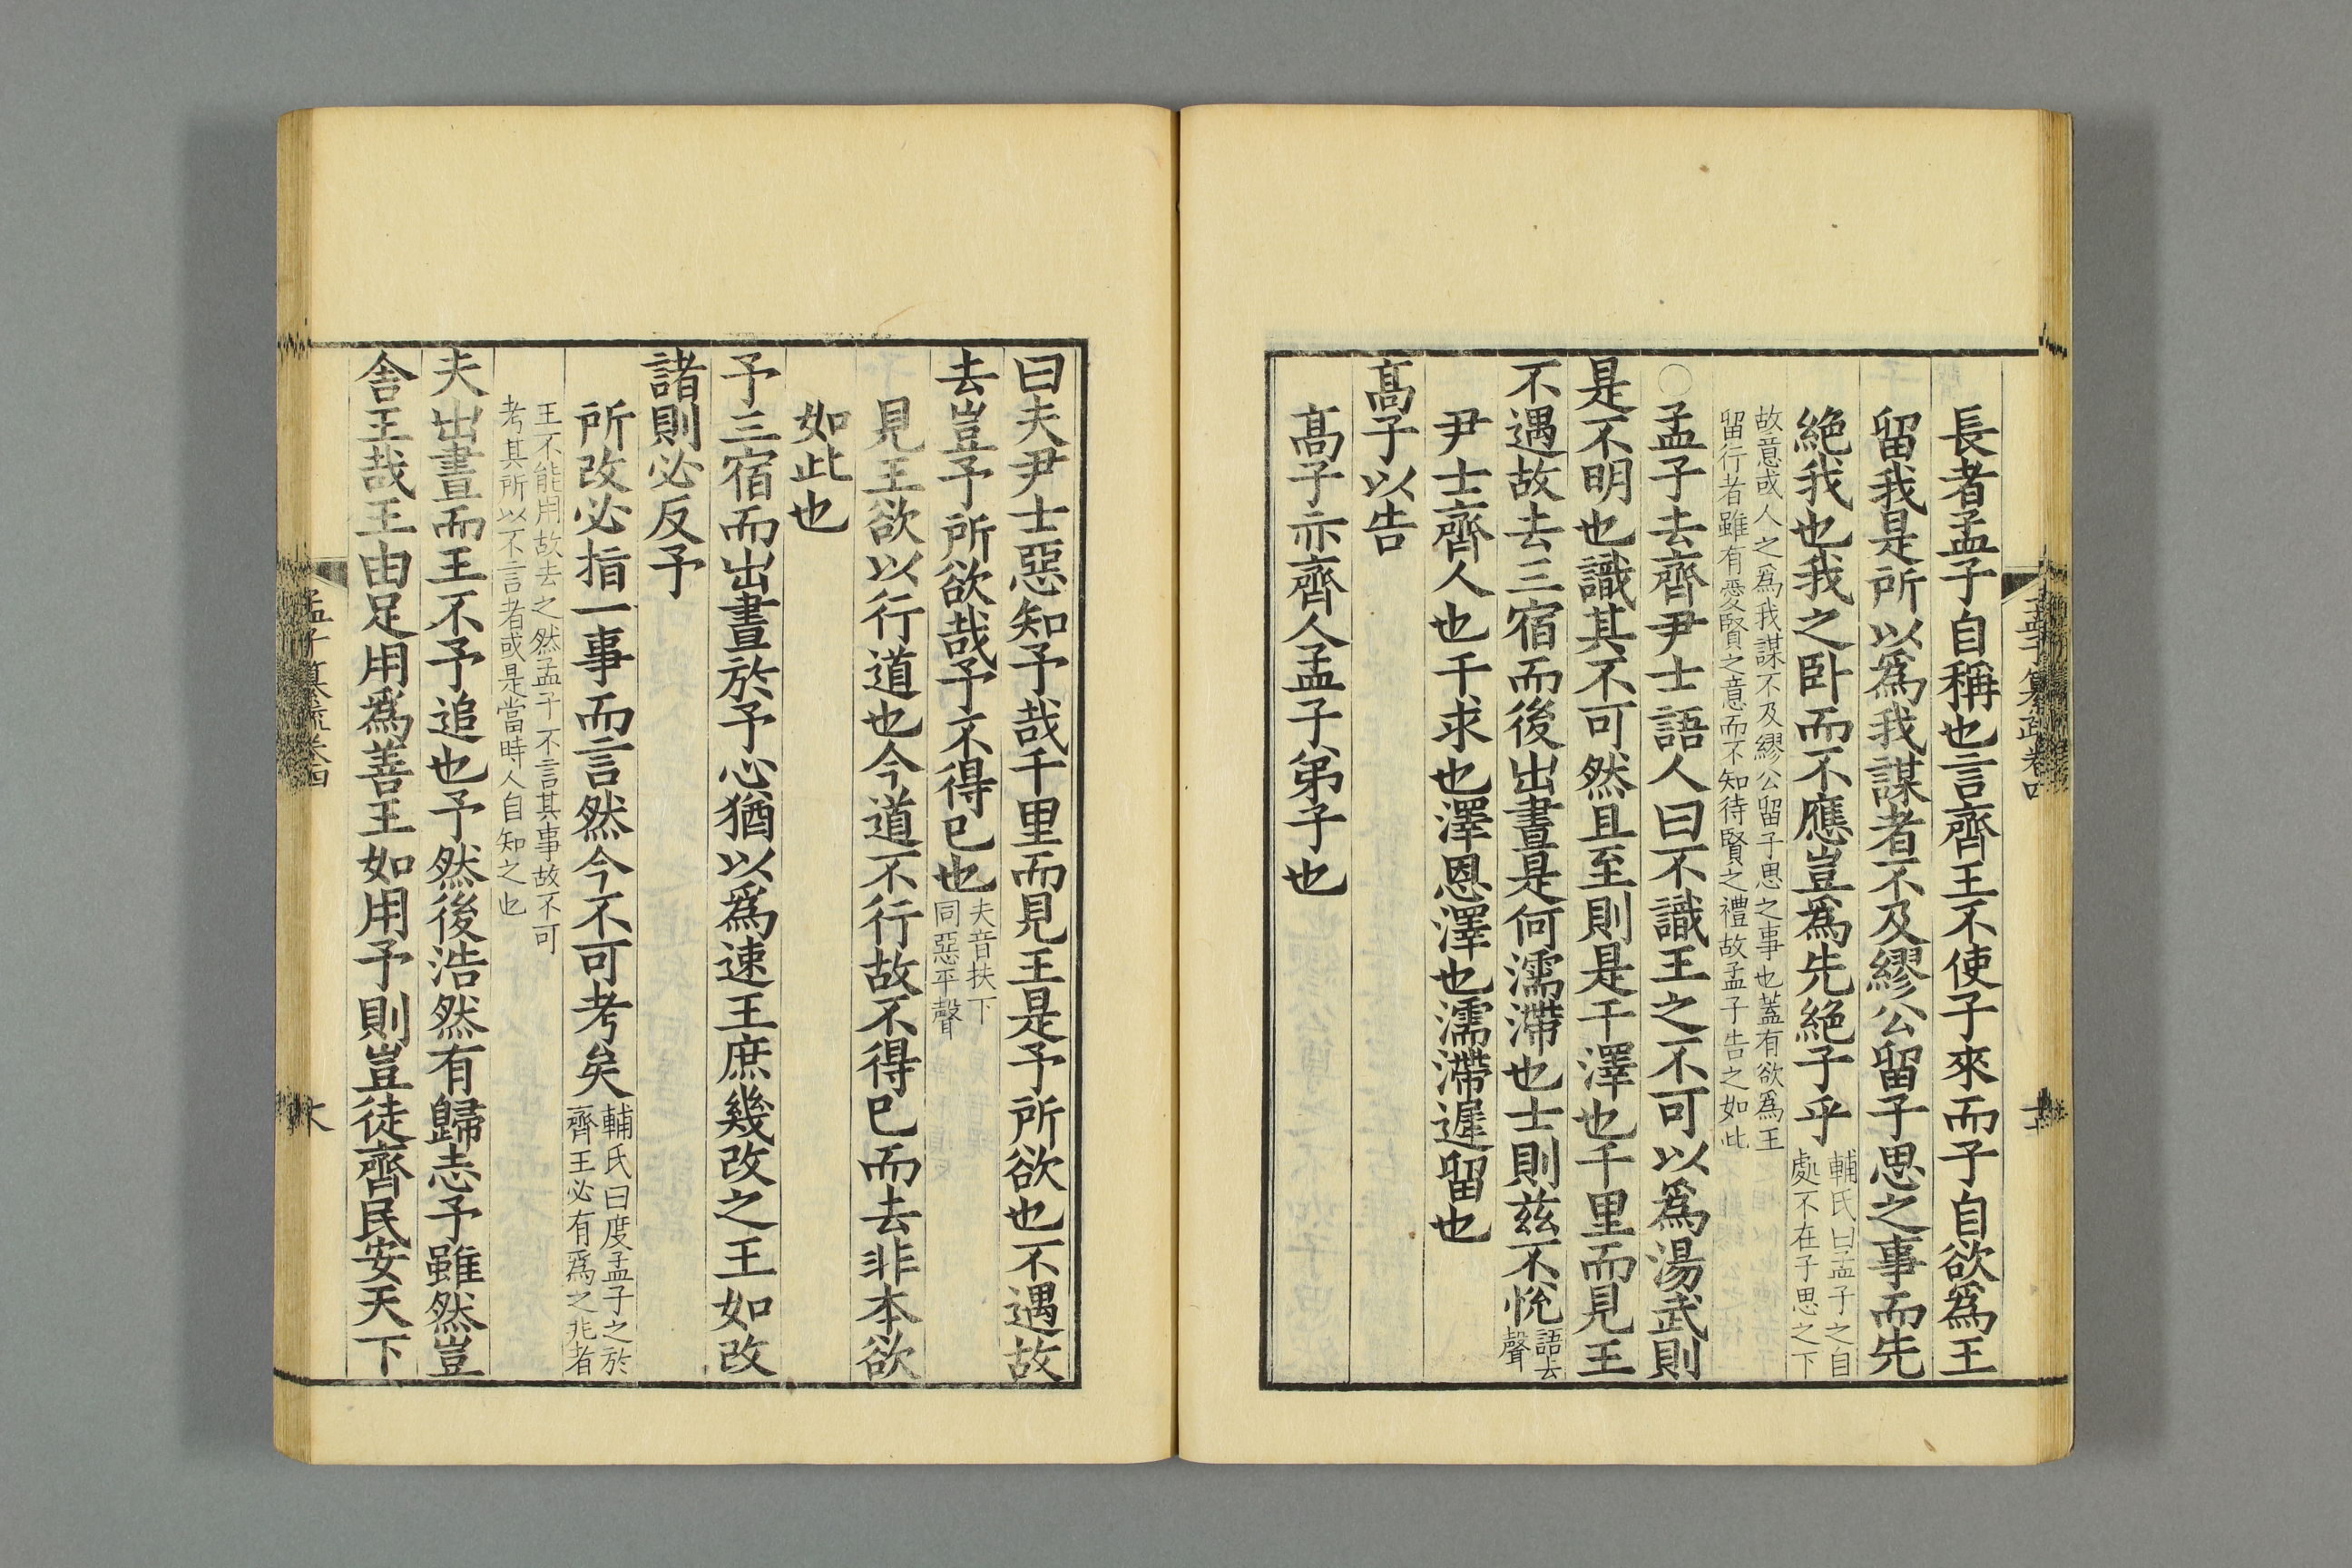 長者孟子自稱也言齊王不使子來而子自欲為王
留我是所以為我謀者不及繆公留子思之事而先
絶我也我之卧而不應豈為先絶子乎
輔氏曰孟子之自
處不在子思之下
故意或人之為我謀不及繆公留子思之事也蓋有欲為王
留行者雖有愛賢之意而不知待賢之禮故孟子告之如此
○孟子去齊尹士語人曰不識王之不可以為湯武則
是不明也識其不可然且至則是干澤也千里而見王
不遇故去三宿而後出晝是何濡滯也士則茲不悅
語去
聲
尹士齊人也干求也澤恩澤也濡滯遲留也
高子以告
高子亦齊人孟子弟子也
孟子纂疏卷四
曰夫尹士惡知予哉千里而見王是予所欲也不遇故
去豈予所欲哉予不得已也
夫音扶下
同惡平聲
見王欲以行道也今道不行故不得已而去非本欲
如此也
予三宿而出晝於予心猶以為速王庶幾改之王如改
諸則必反予
所改必指一事而言然今不可考矣
輔氏曰度孟子之於
齊王必有為之兆者
王不能用故去之然孟子不言其事故不可
考其所以不言者或是當時人自知之也
夫出晝而王不予追也予然後浩然有歸志予雖然豈
舍王哉王由足用為善王如用予則豈徒齊民安天下
孟子纂疏卷四